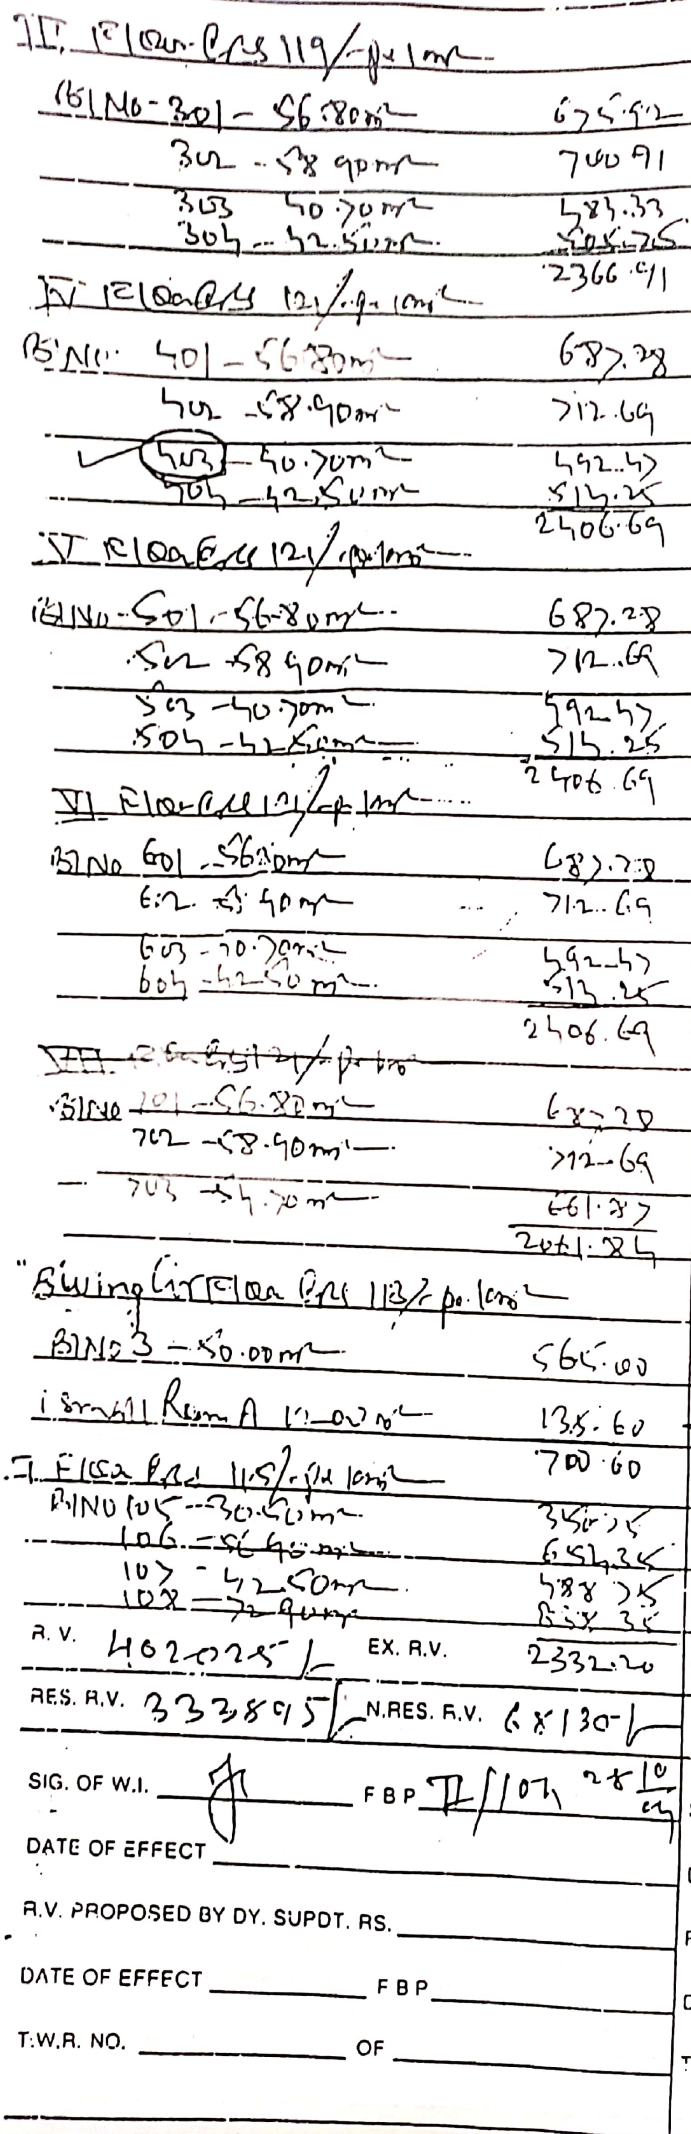 III Floor @ Rs 119/- per 1m²
Bl No - 301 - 56.80m² 675.92
302 - 58.90m² 700.91
303 40.70m² 484.33
304 - 42.50m² 505.75
2366.91
IV Floor @ Rs 121/- per 1m²
Bl No. 401 - 56.80m² 687.28
402 - 58.90m² 712.69
403 - 40.70m² 492.47
404 - 42.50m² 514.25
2406.69
V Floor @ Rs 121/- per 1m²
Bl No - 501 - 56.80m² 687.28
502 - 58.90m² 712.69
503 - 40.70m² 492.47
504 - 42.50m² 514.25
2406.69
VI Floor @ Rs 121/- per 1m²
Bl No 601 - 56.80m² 687.28
602 - 58.90m² 712.69
603 - 40.70m² 492.47
604 - 42.50m² 514.25
2406.69
VII Floor @ Rs 121/- per 1m²
Bl No 701 - 56.80m² 687.28
702 - 58.90m² 712.69
703 - 54.70m² 661.87
2061.84
"B" Wing Gr Floor @ Rs 113/- per 1m²
Bl No 3 - 50.00m² 565.00
1 Small Room A 12.00m² 135.60
700.60
I Floor @ Rs 115/- per 1m²
Bl No 105 - 30.50m² 350.75
106 - 56.90m² 654.35
107 - 42.50m² 488.75
108 - 72.90m² 838.35
2332.20
R. V. 402025/- EX. R.V.
RES. R.V. 333895/- N.RES. R.V. 68130/-
SIG. OF W.I. F B P II/107 28/10/04
DATE OF EFFECT
R.V. PROPOSED BY DY. SUPDT. RS.
DATE OF EFFECT F B P
T.W.R. NO. OF